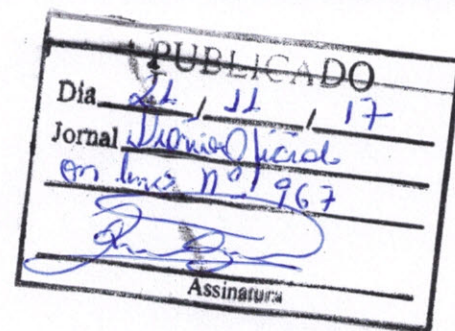 PUBLICADO
Dia 21 / 11 / 17
Jornal Diário Oficial
on line nº 967
Assinatura